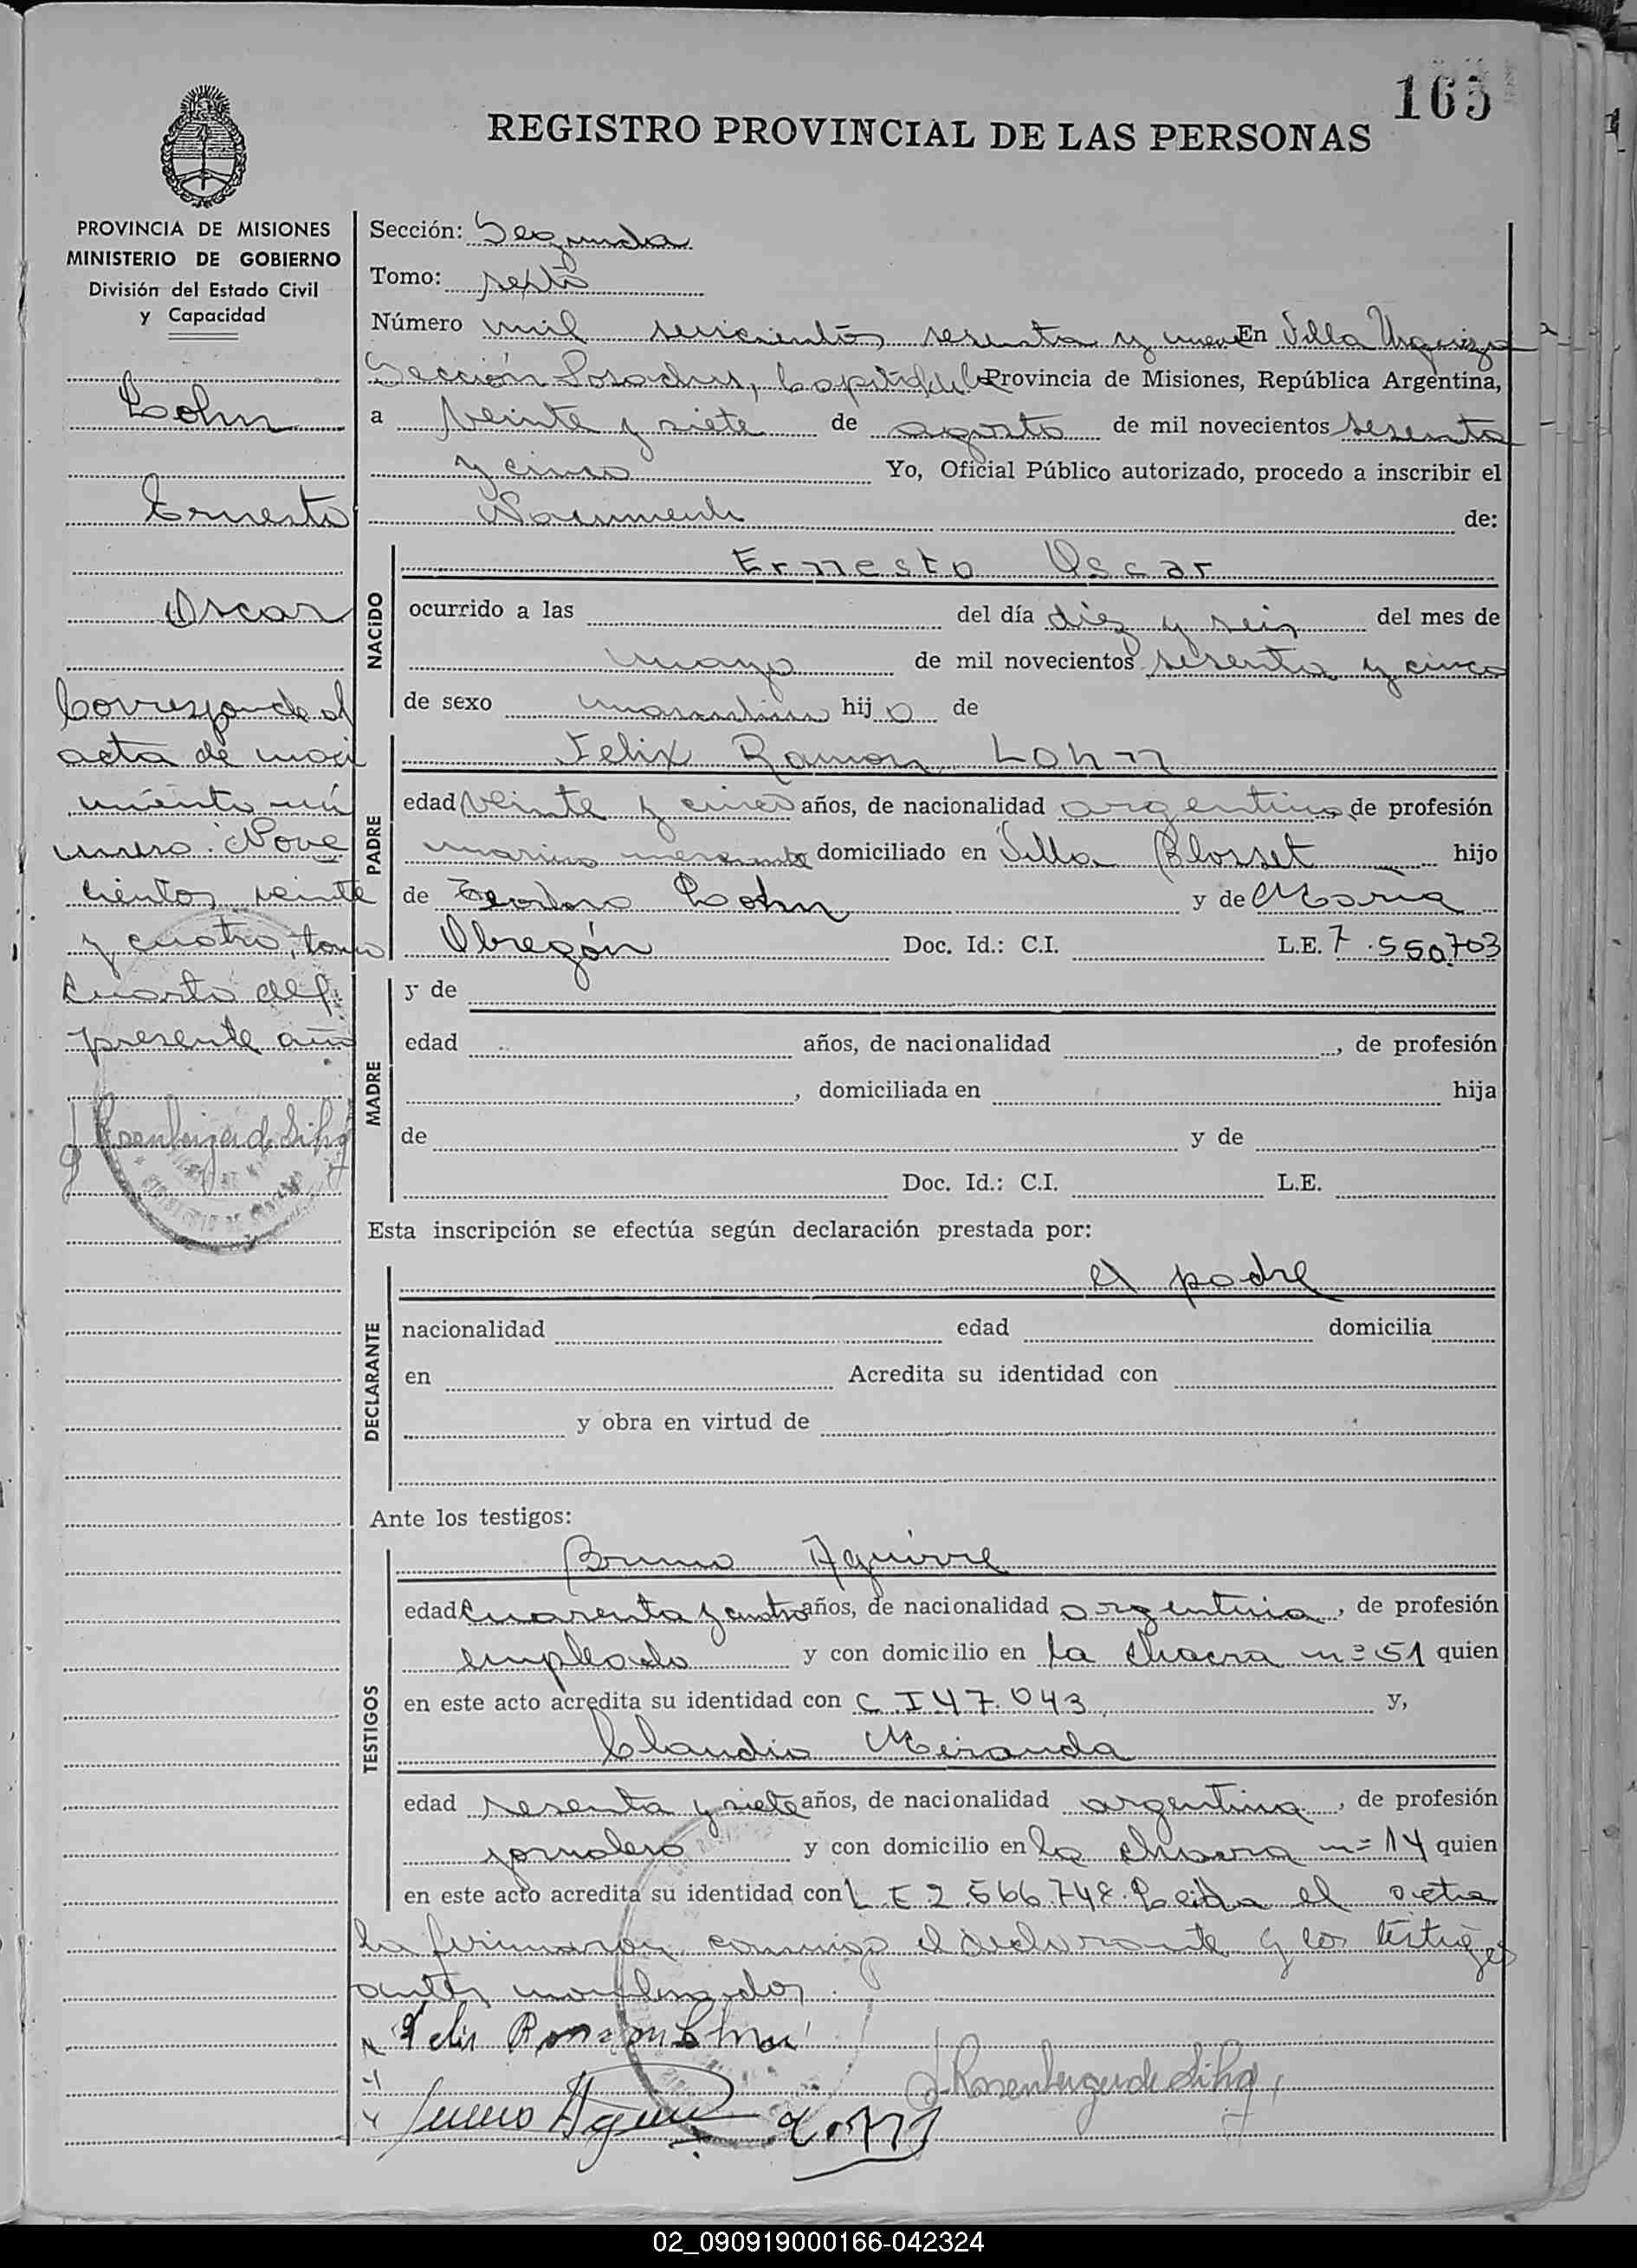 165
REGISTRO PROVINCIAL DE LAS PERSONAS
PROVINCIA DE MISIONES
MINISTERIO DE GOBIERNO
División del Estado Civil
y Capacidad
Lohn
Ernesto
Oscar
Corresponde al
acta de naci
miento nú
mero: Nove
cientos veinte
y cuatro, tomo
cuarto del
presente año
Sección: Segunda
Tomo: sexto
Número mil seiscientos sesenta y nueve En Villa Urquiza
Sección Posadas, Capital de la Provincia de Misiones, República Argentina,
a veinte y siete de agosto de mil novecientos sesenta
y cinco Yo, Oficial Público autorizado, procedo a inscribir el
Nacimiento de:
NACIDO
Ernesto Oscar
ocurrido a las del día diez y seis del mes de
mayo de mil novecientos sesenta y cinco
de sexo masculino hijo de
PADRE
Felix Ramon Lohn
edad veinte y cinco años, de nacionalidad argentina de profesión
marino mercante domiciliado en Villa Blosset hijo
de Teodoro Lohn y de María
Obregón Doc. Id.: C.I. L.E. 7.550.703
MADRE
y de
edad años, de nacionalidad , de profesión
, domiciliada en hija
de y de
Doc. Id.: C.I. L.E.
Esta inscripción se efectúa según declaración prestada por:
DECLARANTE
el padre
nacionalidad edad domicilia
en Acredita su identidad con
y obra en virtud de
Ante los testigos:
TESTIGOS
Bruno Aguirre
edad cuarenta y cuatro años, de nacionalidad argentina, de profesión
empleado y con domicilio en la chacra nº 51 quien
en este acto acredita su identidad con C.I 47.043 y,
Claudio Miranda
edad sesenta y siete años, de nacionalidad argentina, de profesión
jornalero y con domicilio en la chacra nº 14 quien
en este acto acredita su identidad con L.E 2.566.748. Leida el acta
la firmaron conmigo el declarante y los testigos
antes nombrados.
Felix Ramon Lohn
02_090919000166-042324